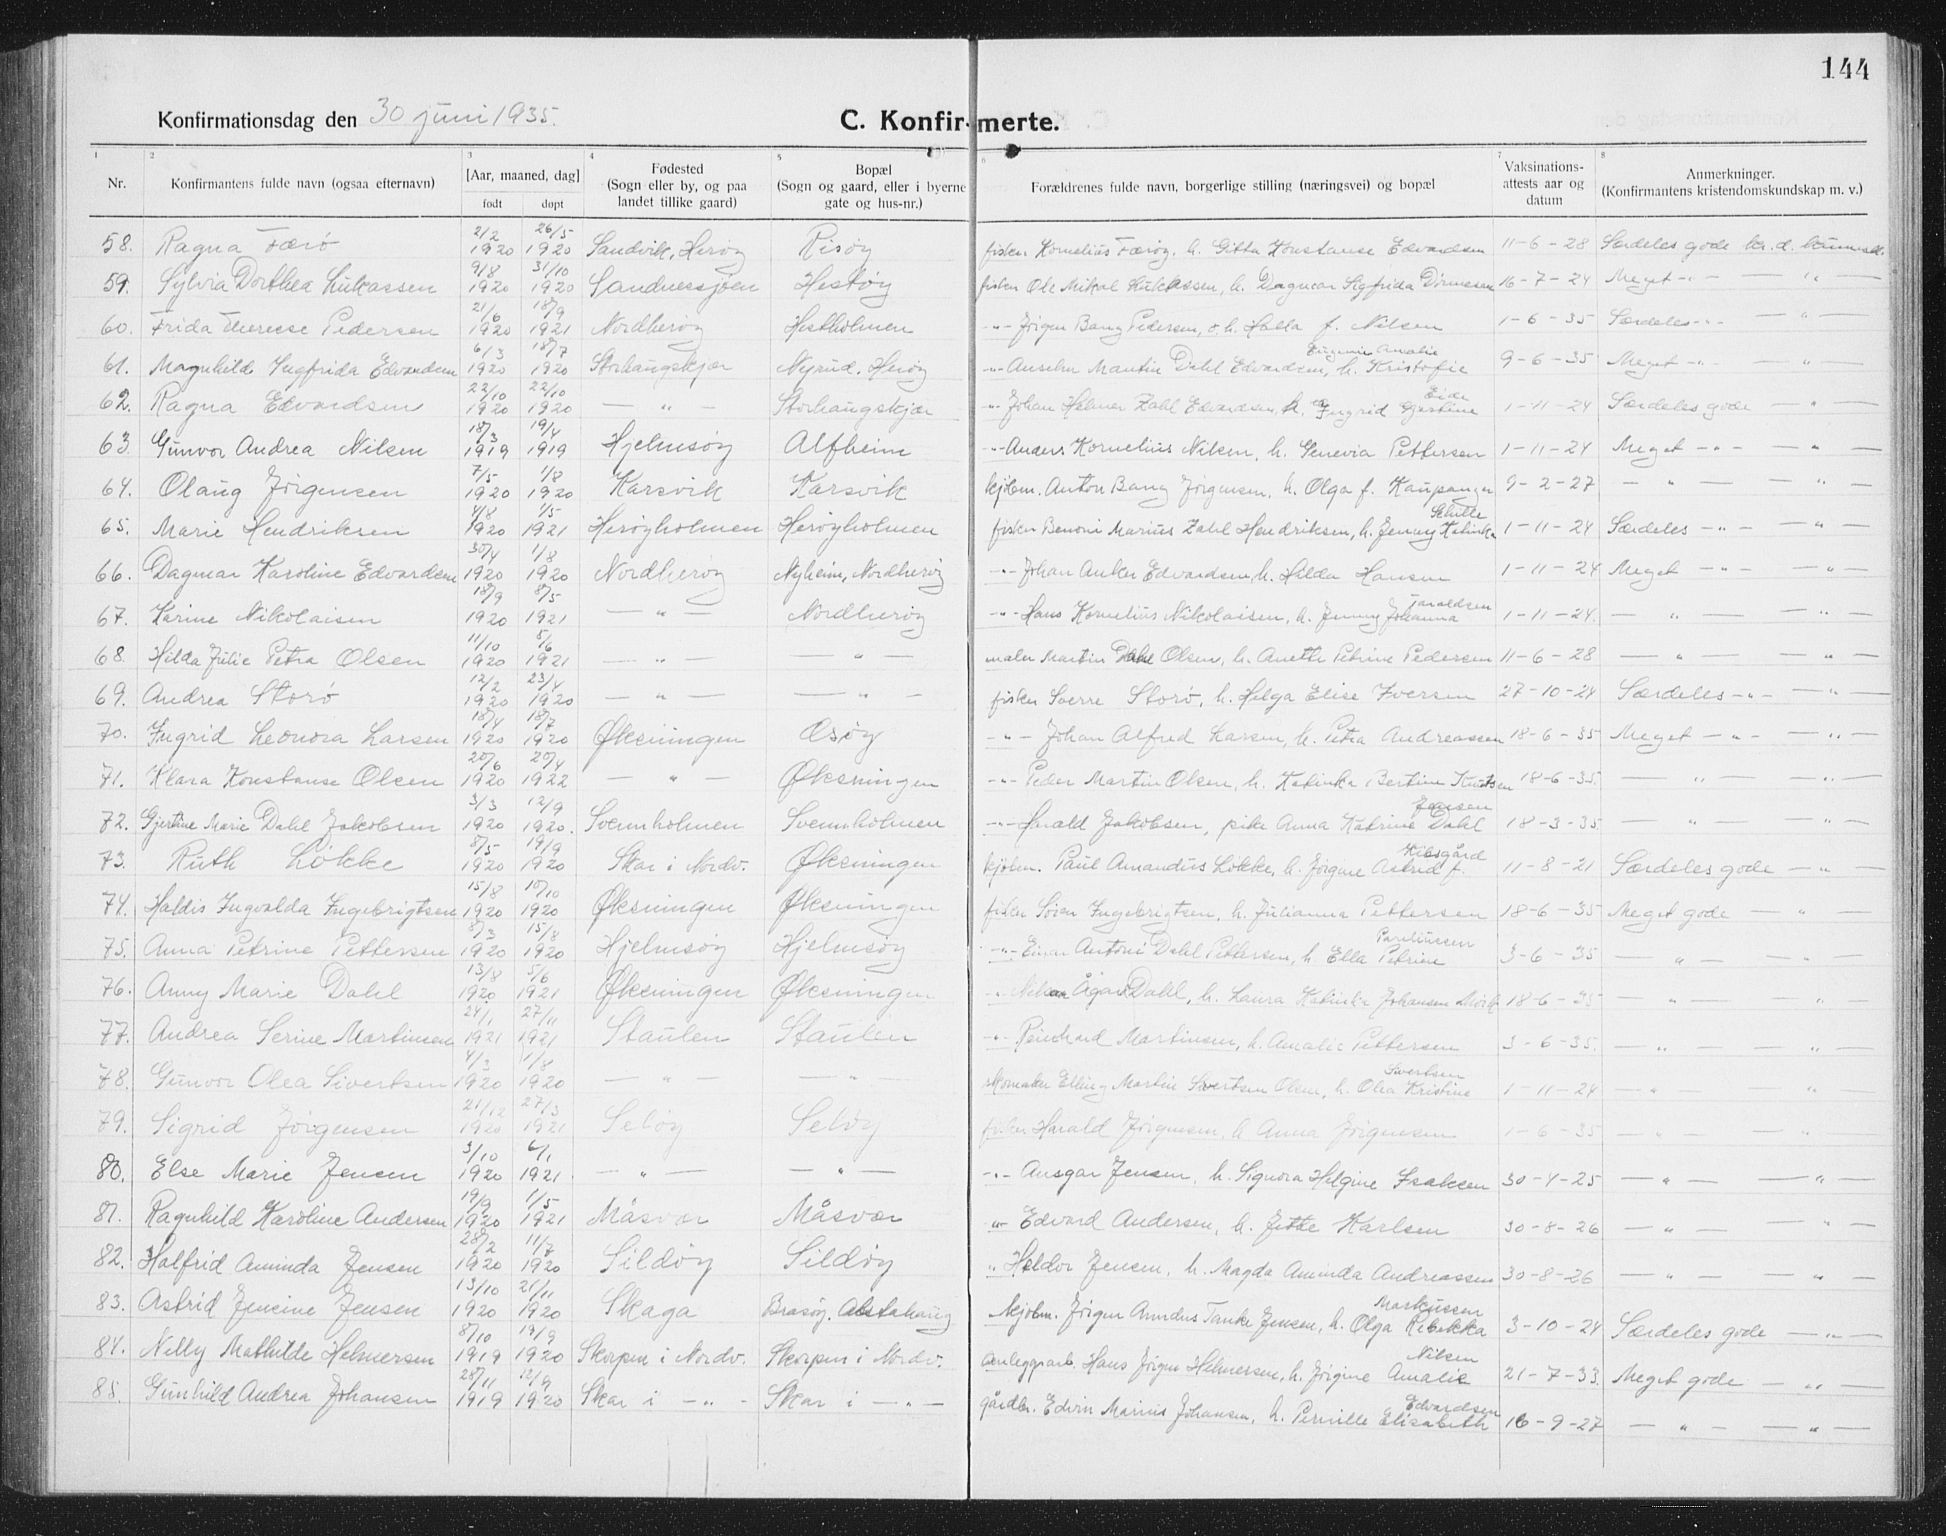 144
Konfirmationsdag den 30 juni 1935.
C. Konfirmerte.
1 2 3 4 5 6 7 8
Nr. Konfirmantens fulde navn (ogsaa efternavn) [Aar, maaned, dag] født døpt Fødested (Sogn eller by, og paa landet tillike gaard) Bopæl (Sogn og gaard, eller i byerne gate og hus-nr.) Forældrenes fulde navn, borgerlige stilling (næringsvei) og bopæl Vaksinations-attests aar og datum Anmerkninger. (Konfirmantens kristendomskundskap m. v.)
58. Ragna Færö 2/2 1920 26/5 1920 Sandvik, Heröy Risöy fisker Kornelius Færöy, h. Gitta Konstanse Edvardsen 11-6-28 Særdeles gode kr.d.
59. Sylvia Dorthea Lukassen 9/8 1920 31/10 1920 Sandnessjöen Hestöy fisker Ole Mikal Lukassen, h. Dagmar Sigfrida 16-7-24 Meget -"- — " —
60. Frida Therese Pedersen 21/6 1920 18/9 1921 Nordheröy Hestholmen -"- Jörgen Bang Pedersen, o. h. Halla f. Nilsen 1-6-35 Særdeles -"- — " —
61. Magnhild Ingfrida Edvardsen 6/3 1920 18/7 1920 Storhaugskjær Nyrud, Heröy -"- Anselm Martin Dahl Edvardsen, h. Kristofie Eugenie Amalie 9-6-35 Meget -"- — " —
62. Ragna Edvardsen 22/10 1920 22/10 1920 — " — Storhaugskjær -"- Johan Helmer Zahl Edvardsen, h. Ingrid Gjertine Eide 1-11-24 Særdeles gode — " —
63. Gunvor Andrea Nilsen 18/3 1919 19/4 1919 Hjelmsöy Alfheim -"- Anders Kornelius Nilsen, h. Genevia Pettersen 1-11-24 Meget -"- — " —
64. Olaug Jörgensen 7/5 1920 1/8 1920 Karsvik Karsvik kjöbm. Anton Bang Jörgensen, h. Olga f. Kaupanger 9-2-27 — " — — " —
65. Marie Hendriksen 4/8 1920 1/5 1921 Heröyholmen Heröyholmen fisker Benoni Marius Zahl Hendriksen, h. Jenny Katinka Schille 1-11-24 Særdeles -"- — " —
66. Dagmar Karoline Edvardsen 30/4 1920 1/8 1920 Nordheröy Nyheim, Nordheröy -"- Johan Anker Edvardsen, h. Hilda Hansen 1-11-24 Meget -"- — " —
67. Karine Nikolaisen 18/9 1920 8/5 1921 — " — Nordheröy -"- Hans Kornelius Nikolaisen, h. Jenny Johanna Taraldsen 1-11-24. — " — — " —
68. Hilda Julie Petra Olsen 11/10 1920 5/6 1921 — " — — " — maler Martin Dahl Olsen, h. Anette Petrine Pedersen 11-6-28 — " — — " —
69. Andrea Storö 12/2 1920 23/4 1920 — " — — " — fisker Sverre Storö, h. Helga Elise Iversen 27-10-24 Særdeles -"- — " —
70. Ingrid Leonora Larsen 18/4 1920 18/7 1920 Øksningen Åsöy -"- Johan Alfred Larsen, h. Petra Andreassen 18-6-35 Meget -"- — " —
71. Klara Konstanse Olsen 20/6 1920 20/4 1922 — " — Øksningen -"- Peder Martin Olsen, h. Katinka Bertine Knutsen 18-6-35. — " — — " —
72. Gjertine Marie Dahl Jakobsen 3/3 1920 12/9 1920. Svennholmen Svennholmen -"- Harald Jakobsen, pike Anna Katrine Dahl Jensen 18-3-35. — " — — " —
73. Ruth Lökke 8/5 1920 19/9 1920 Skar i Nordv. Øksningen kjöbm. Paul Amandus Lökke, h. Jörgine Astrid f. Hilsgård 11-8-21 Særdeles gode — " —
74. Haldis Ingvalda Ingebrigtsen 15/8 1920 10/10 1920 Øksningen Øksningen fisker Sören Ingebrigtsen, h. Julianna Pettersen 18-6-35 Meget gode — " —
75. Anna Petrine Pettersen 8/3 1920 15/8 1920 Hjelmsöy Hjelmsöy -"- Einar Antoni Dahl Pettersen, h. Ella Petrine Pareliussen 3-6-35 — " — — " —
76. Anny Marie Dahl 13/8 1920 5/6 1921 Øksningen Øksningen -"- Dahl, h. Laura Katinka Johansen 18-6-35 — " — — " —
77. Andrea Serine Martinsen 24/1 1921 27/11 1921 Staulen Staulen -"- Reinhard Martinsen, h. Amalie Pettersen 3-6-35. — " — — " —
78. Gunvor Olea Sivertsen 4/3 1920 1/8 1920 — " — — " — skomaker Elling Martin Sivertsen Olsen, h. Olea Kristine Sivertsen 1-11-24 — " — "
79. Sigrid Jörgensen 21/12 1920 27/3 1921 Selöy Selöy fisker Harald Jörgensen, h Anna Jörgensen 1-6-35 — " — — " —
80. Else Marie Jensen 3/10 1920 6/1 1921 — " — — " — -"- Ansgar Jensen, h. Signora Helgine Isaksen 30-4-25 — " — — " —
81. Ragnhild Karoline Andersen 19/9 1920 1/5 1921 Måsvær Måsvær -"- Edvard Andersen, h. Jette Karlsen 30-8-26 — " — " —
82. Halfrid Aminda Jensen 28/2 1920 11/7 1920 Sildöy Sildöy " Haldor Jensen, h. Magda Aminda Andreassen 30-8-26 — " — — " —
83. Astrid Jensine Jensen 13/10 1920 21/11 1920 Skaga Brasöy, Alstahaug kjöbm. Jörgen Amdus Tanke Jensen, h. Olga Rebekka Markussen 3-10-24 Særdeles gode — " —
84. Nelly Mathilde Helmersen 8/10 1919 19/9 1920 Skorpen i Nordv. Skorpen i Nordv. anleggsarb. Hans Jörgen Helmersen, h. Jörgine Amalie Nilsen 21-7-33. Meget gode — " —
85. Gunhild Andrea Johansen 28/11 1919 12/9 1920 Skar i — " - Skar i — " — gårdbr. Edvin Marius Johansen, h. Pernille Elisabeth Edvardsen 16-9-27 — " — — " —